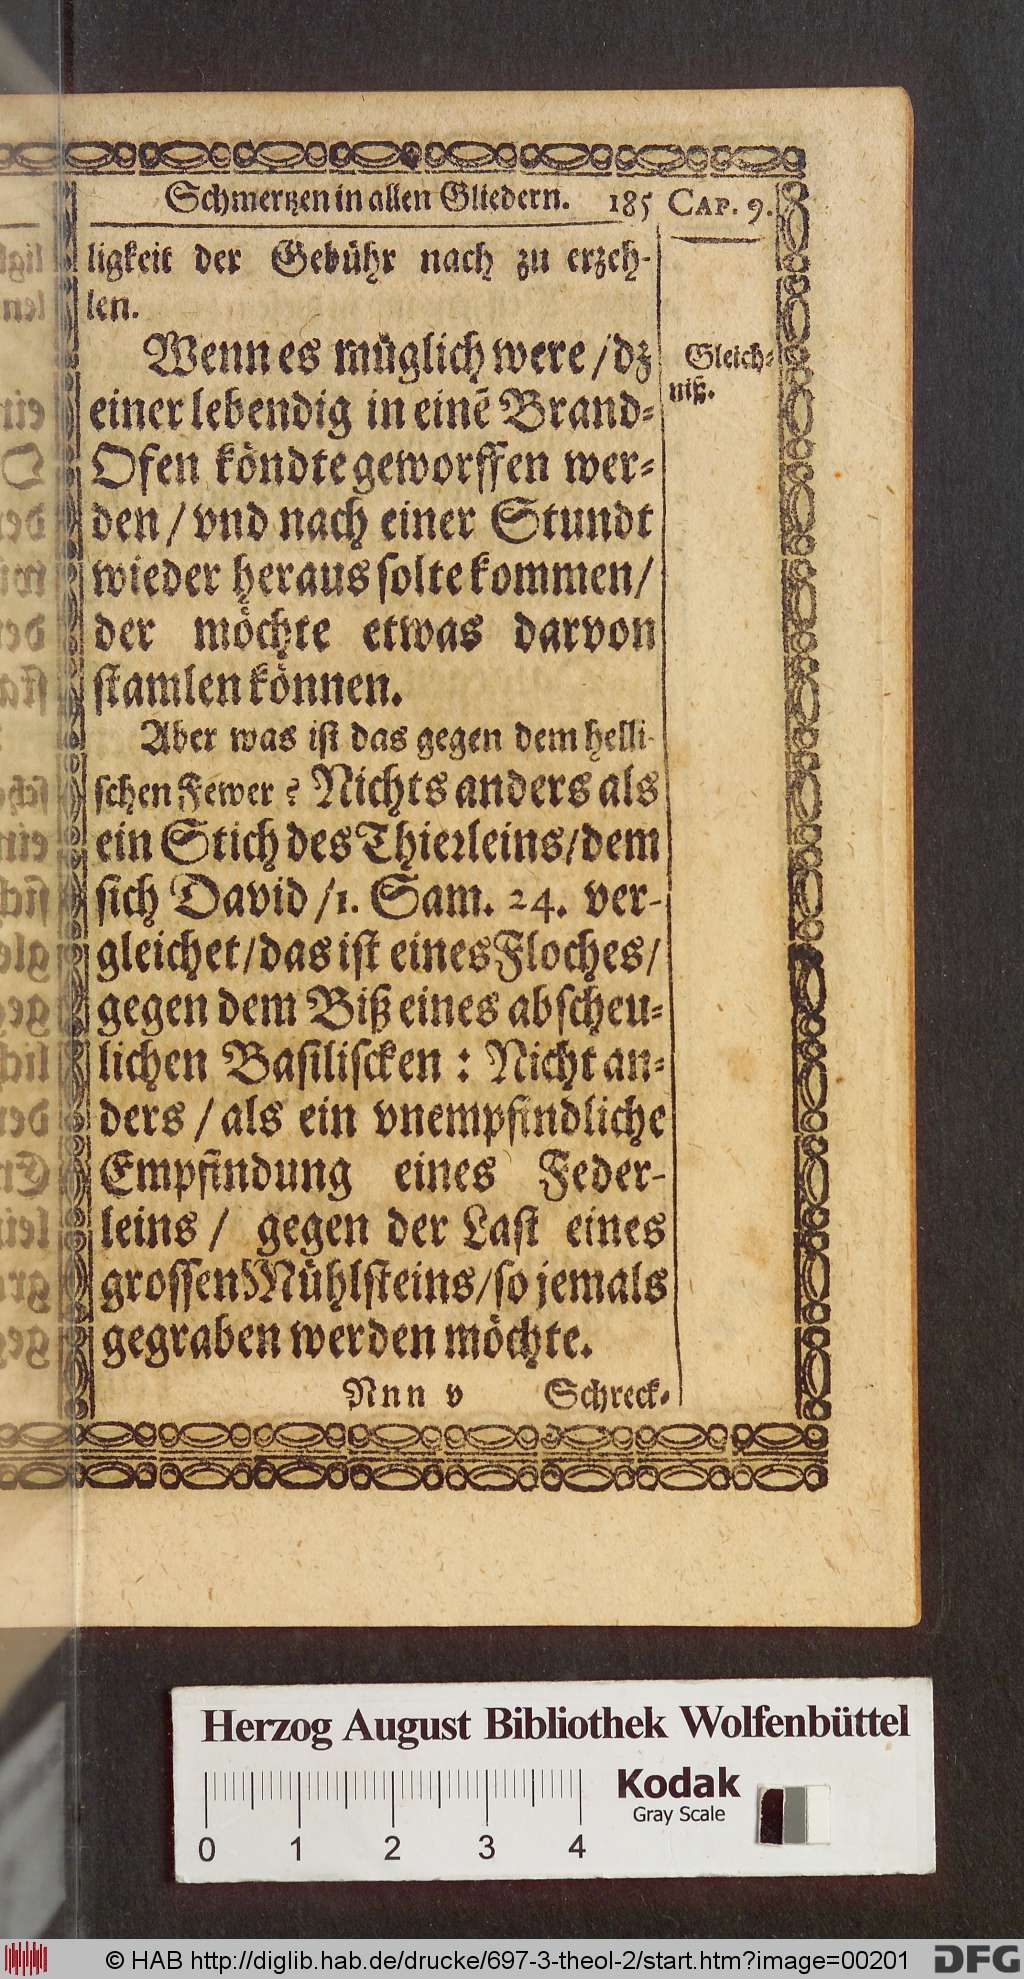 Schmertzen in allen Gliedern. 185 CAP. 9.
ligkeit der Gebühr nach zu erzeh-
len.
Wenn es müglich were / dz
Gleich-
niß.
einer lebendig in einē Brand-
Ofen köndte geworffen wer-
den / vnd nach einer Stundt
wieder heraus solte kommen /
der möchte etwas darvon
stamlen können.
Aber was ist das gegen dem helli-
schen Fewer ? Nichts anders als
ein Stich des Thierleins / dem
sich David / 1. Sam. 24. ver-
gleichet / das ist eines Floches /
gegen dem Biß eines abscheu-
lichen Basiliscken : Nicht an-
ders / als ein vnempfindliche
Empfindung eines Feder-
leins / gegen der Last eines
grossen Mühlsteins / so jemals
gegraben werden möchte.
Nnn v Schreck-
Herzog August Bibliothek Wolfenbüttel
Kodak
Gray Scale
0 1 2 3 4
© HAB http://diglib.hab.de/drucke/697-3-theol-2/start.htm?image=00201
DFG